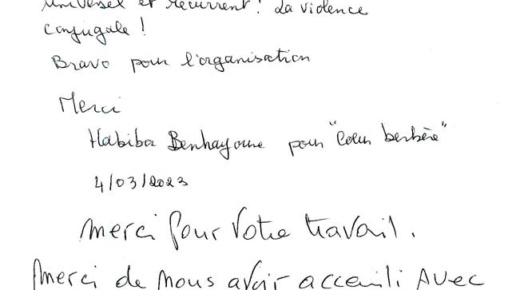 universel et récurrent : la violence
conjugale !
Bravo pour l'organisation
Merci
Habiba Benhayoune pour "Coeur berbère"
4/03/2023
Merci pour votre travail.
Merci de nous avoir accueilli avec